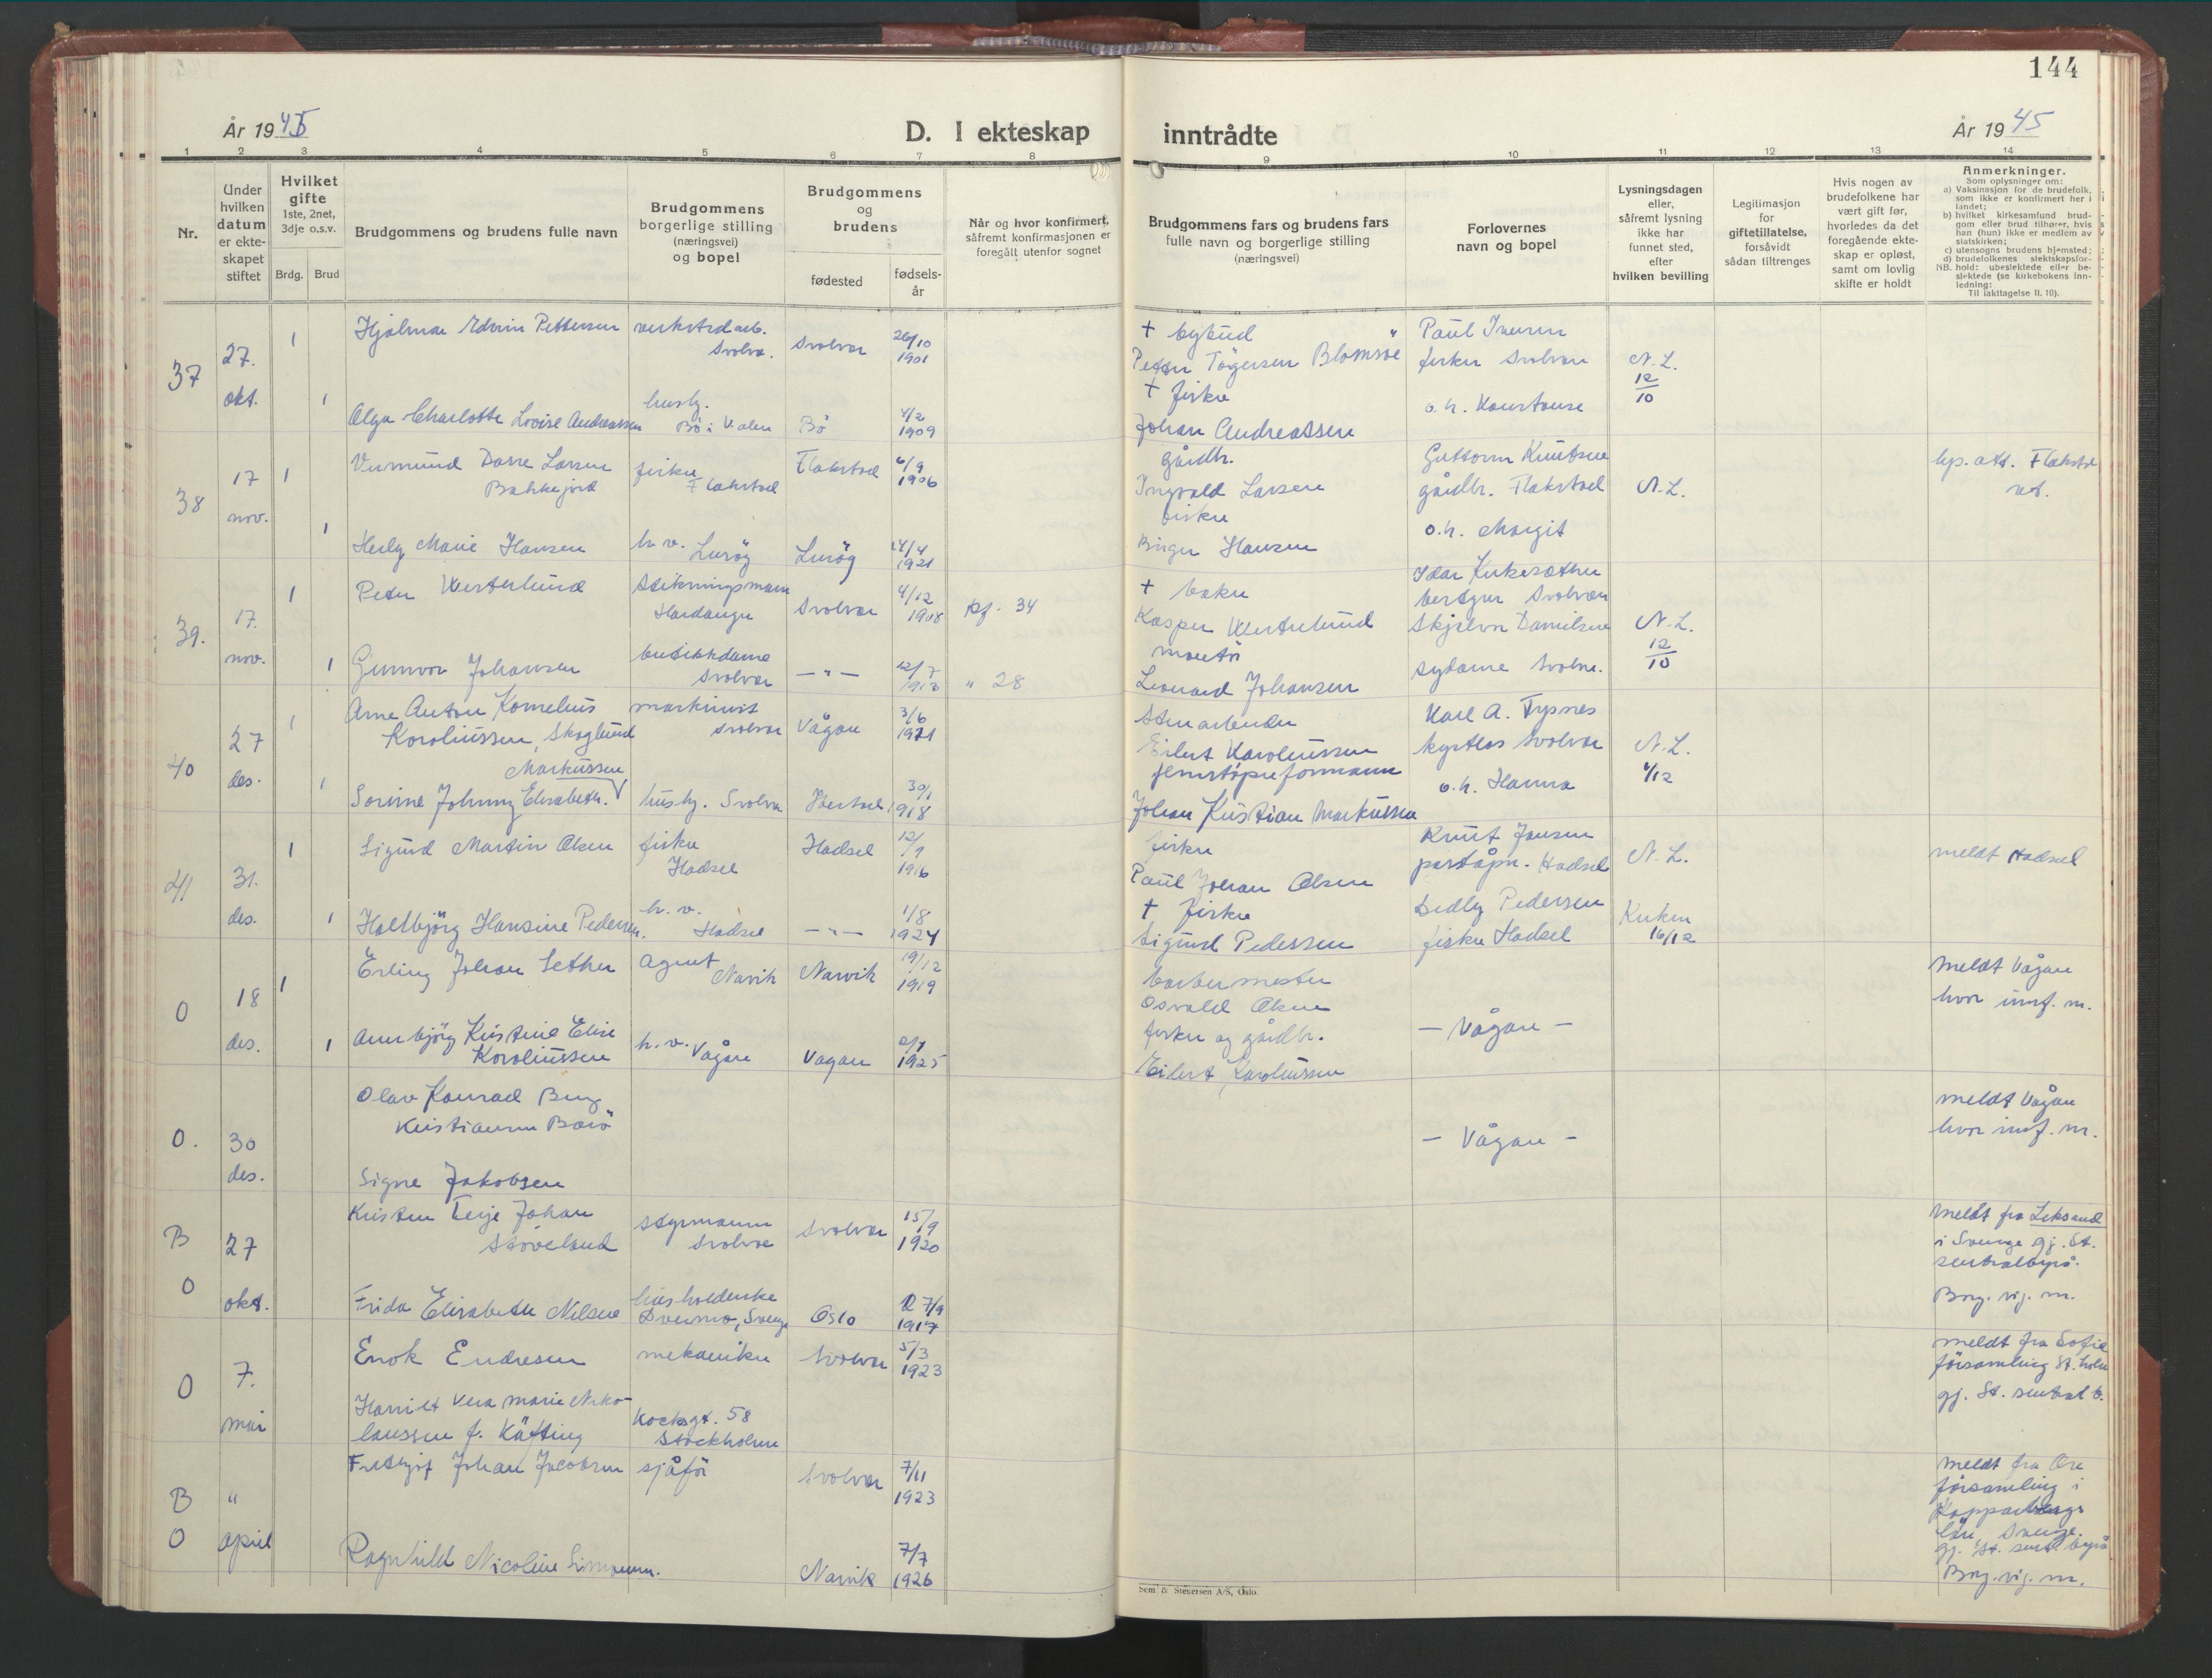 144
År 1945
D. I ekteskap inntrådte
År 19 45
1 2 3 4 5 6 7 8 9 10 11 12 13 14
Nr.
Under hvilken datum er ekteskapet stiftet
Hvilket gifte
1ste, 2net, 3dje o.s.v.
Brdg. Brud
Brudgommens og brudens fulle navn
Brudgommens borgerlige stilling (næringsvei) og bopel
Brudgommens og brudens
fødested
fødselsår
Når og hvor konfirmert, såfremt konfirmasjonen er foregått utenfor sognet
Brudgommens fars og brudens fars fulle navn og borgerlige stilling (næringsvei)
Forlovernes navn og bopel
Lysningsdagen eller, såfremt lysning ikke har funnet sted, efter hvilken bevilling
Legitimasjon for giftetillatelse, forsåvidt sådan tiltrenges
Hvis nogen av brudefolkene har vært gift før, hvorledes da det foregående ekteskap er opløst, samt om lovlig skifte er holdt
Anmerkninger.
Som oplysninger om:
a) Vaksinasjon for de brudefolk, som ikke er konfirmert her i landet;
b) hvilket kirkesamfund brudgom eller brud tilhører, hvis han (hun) ikke er medlem av statskirken;
c) utensogns brudens hjemsted;
d) brudefolkenes slektskapsforhold: ubeslektede eller beslektede (se kirkebokens innledning:
NB.
Til iakttagelse II. 10).
37
27. okt.
1
Hjalmar Edvin Pettersen
verkstedarb. Svolvær
Svolvær
26/10 1901
+ bybud
Petter Tøgersen Blomsøe
Paul Iversen
fisker Svolvær
o.h. Konstanse
N.L. 12/10
1
Olga Charlotte Lovise Andreassen
husby. Bø i V.ålen
Bø
4/2 1909
+ fisker
Johan Andreassen
38
17 nov.
1
Vermund Darre Larsen Bakkejord
fisker Flakstad
Flakstad
6/9 1906
gårdbr.
Ingvald Larsen
Guttorm Knutsen
gårdbr. Flakstad
o.h. Margit
N.L.
lys. att. Flakstad
1
Herly Marie Hansen
h.v. Lurøy
Lurøy
24/4 1921
fisker
Birger Hansen
39.
17. nov.
1
Peter Westerlund
Stikningsmann Hardanger
Svolvær
4/12 1908
kf. 34
+ baker
Kasper Westerlund
Idar Kirkesæther
Svolvær
Skjelvor Danielsen
sydame Svolvær
N.L. 12/10
1
Gunvor Johansen
butikkdame Svolvær
— " —
12/7 1913
" 28
montør
Leonard Johansen
40
27 des.
1
Arne Anton Kornelius
Karoliussen, Skoglund
maskinist Svolvær
Vågan
3/6 1921
Stenarbeider
Eilert Karoliussen
Karl A. Fypnes
Svolvær
o.h. Hanna
N.L. 4/12
1
Markussen
Sorine Johnny Elisabeth.
husby. Svolvær
30/1 1918
jernstøperformann
Johan Kristian Markussen
41
31. des.
1
Sigurd Martin Olsen
fisker Hadsel
Hadsel
12/9 1916
fisker
Paul Johan Olsen
Knut Jensen
poståpn. Hadsel
Dedly Pedersen
fisker Hadsel
N.L.
Kirken 16/12
meldt Hadsel
1
Haltbjörg Hansine Pedersen.
h.v. Hadsel
— " —
1/8 1924
+ fisker
Sigurd Pedersen
0
18 des.
1
Erling Johan Sether
Agent Narvik
Narvik
19/12 1919
barbermester
Osvald Olsen
— Vågan —
meldt Vågan
hvor innf. m.
1
Annbjörg Kristine Elise
Karoliussen
h.v. Vågan
Vagan
2/7 1925
fisker og gårdbr.
Eilert Karoliussen
0.
30 des.
Olav Konrad Berg
Kristiansen Barø
— Vågan —
meldt Vågan
hvor innf. m.
Signe Jakobsen
B 0
27 okt.
Kristen Terje Johan
Støveland
styrmann Svolvær
Svolvær
15/9 1920
meldt fra Leksand
i Sverige gj. St.
sentralbyrå.
Borg. vig. m.
Frida Elisabeth Nilsen
husholderske
Sverige
Oslo
27/9 1917
0
7. mai
Enok Endresen
mekaniker
Svolvær
5/3 1923
meldt fra Sofia
församling St.holm
gj. St. sentral b.
Harriet Vera Marie Niko-
laussen f. Käfting
Kocksgt. 58
Stockholm
B 0
" april
Fridthjof Johan Jacobsen
sjåfør
Svolvær
7/11 1923
meldt fra Ore
församling i
Kopparbergs
län, Sverige.
gj. St. sent. byrå
Borg. vig. m.
Ragnhild Nicoline Simonsen.
Narvik
7/7 1926
Sem & Stenersen A/S, Oslo.